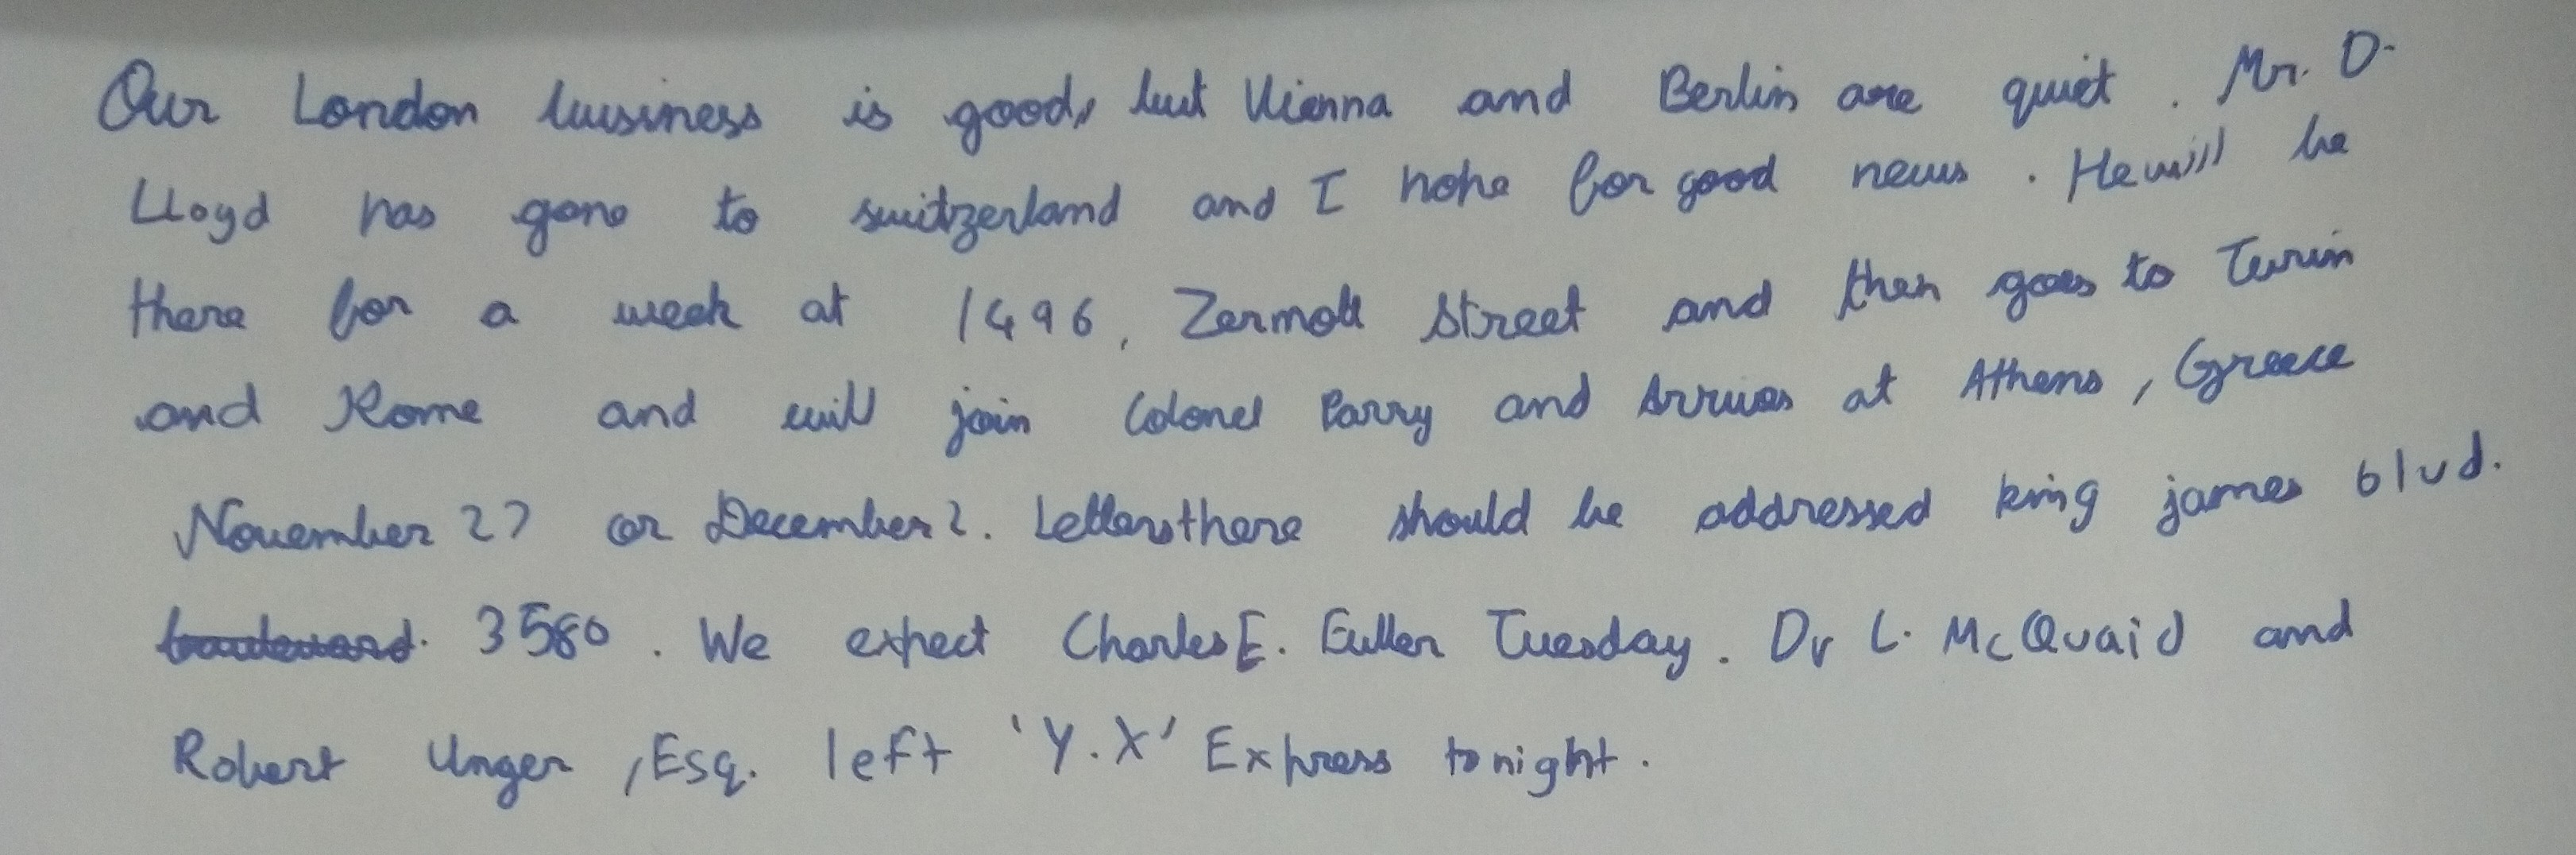 Our London business is good, but Vienna and Berlin are quiet. Mr. D.
Lloyd has gone to switzerland and I hope for good news. He will be
there for a week at 1496, Zermott Street and then goes to Turin
and Rome and will join Colonel Parry and Arrives at Athens, Greece
November 27 or December 2. Letters there should be addressed king james blvd.
3580. We expect Charles E. Fuller Tuesday. Dr L. McQuaid and
Robert Unger, Esq. left 'Y.X' Express tonight.